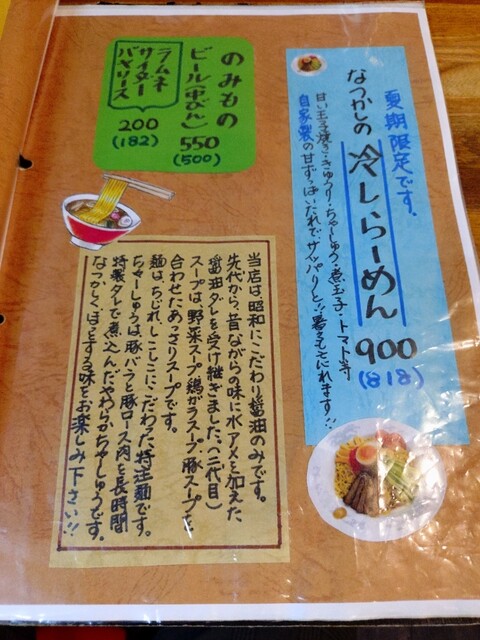 夏期限定です。
なつかしの 冷しらーめん 900
(818)
甘い玉子焼き・きゅうり・ちゃーしゅう・煮玉子・トマト等
自家製の甘ずっぱいたれで、サッパリと!!暑さも忘れます!!
のみもの
ビール(中びん) 550
(500)
ラムネ
サイダー
バヤリース
200
(182)
当店は、昭和にこだわり醤油のみです。
先代から、昔ながらの味に水アメを加えた
醤油ダレを受け継ぎました。(二代目)
スープは、野菜スープ、鶏ガラスープ、豚スープを
合わせたあっさりスープです。
麺は、ちぢれしこしこにこだわった特注麺です。
ちゃーしゅうは、豚バラと豚ロース肉を長時間
特製タレで煮込んだやわらかちゃーしゅうです。
なつかしくほっとする味をお楽しみ下さい!!